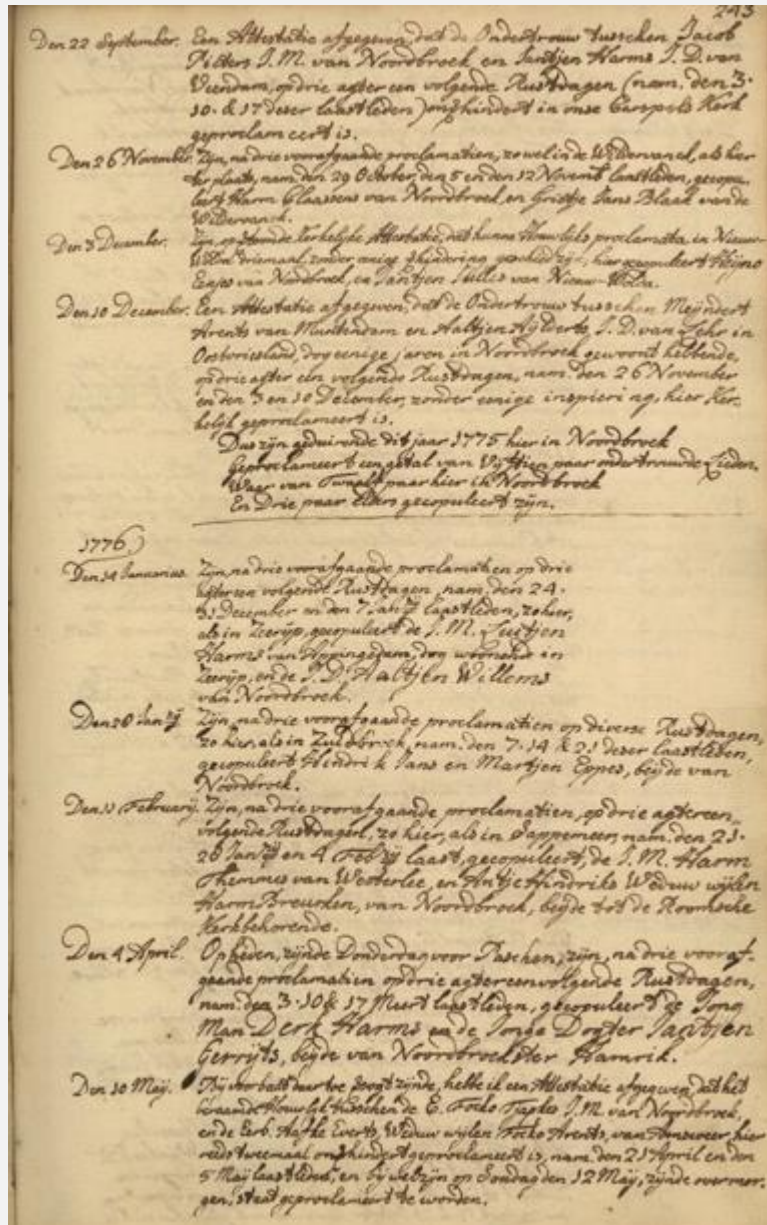 243
Den 22 September. Een Attestatie afgegeven, dat de Ondertrouw tusschen Jacob
Pieters J.M. van Noordbroek en Jantjen Harms J.D. van
Veendam, op drie agter een volgende Rustdagen (nam. den 3.
10. & 17 deser laastleden) onghindert in onse Carspels Kerk
geproclameert is.
Den 26 November. Zijn, na drie voorafgaande proclamatien, zo wel in de Wildervanck, als hier
ter plaats, nam. den 29 October, den 5 en den 12 Novemb. laastleden, gecopu-
leert Harm Claassens van Noordbroek, en Grietje Jans Blaak van de
Wildervanck.
Den 3 December. Zijn, op Kerkelijke Attestatie, dat hunne Houwlijks proclamata, in Nieuw-
Wolda driemaal, zonder enige hindering geschied zijn, hier gecopuleert Heijno
Eenjes van Noordbroek, en Jantjen van Nieuw-Wolda.
Den 10 December. Een Attestatie afgegeven, dat de Ondertrouw tusschen Meijndert
Arents van Muntendam en Aaltjen Aijlderts, J.D. van Lehr in
Oostvriesland, dog eenige jaren in Noordbroek gewoont hebbende,
op drie agter een volgende Rustdagen, nam. den 26 November
en den 3 en 10 December, zonder eenige inspiering, hier Ker-
kelijk geproclameert is.
Dus zijn geduirende dit jaar 1775 hier in Noordbroek
Geproclameert een getal van Vijftien paar ondertrouwde Lieden.
Waar van Twaalf paar hier in Noordbroek
En Drie paar elders gecopuleert zijn.
1776
Den 14 Januarius. Zijn, na drie voorafgaande proclamatien op drie
agtereen volgende Rustdagen, nam. den 24.
31 December en den 7 Jan. laastleden, zo hier,
als in Zeerijp, gecopuleert de J.M. Luitjen
Harms van Appingedam, dog wonende in
Zeerijp, en de J.D. Aaltjen Willems
van Noordbroek.
Den 28 Janrij Zijn, na drie voorafgaande proclamatien op diverse Rustdagen,
zo hier, als in Zuidbroek, nam. den 7. 14 & 21 deser laastleden,
gecopuleert Hindrik Jans en Martjen Eppes, beijde van
Noordbroek.
Den 11 Februarij. Zijn, na drie voorafgaande proclamatien, op drie agtereen-
volgende Rustdagen, zo hier, als in Sappemeer, nam. den 21.
28 Janrij en 4 Febrij laast, gecopuleert, de J.M. Harm
Themmes van Westerlee, en Antje Hindriks Weduw wijlen
Harm Breurken, van Noordbroek, beijde tot de Roomsche
Kerk behorende.
Den 4 April. Op heden, zijnde Donderdag voor Paschen, zijn, na drie vooraf-
gaande proclamatien op drie agtereenvolgende Rustdagen,
nam. den 3. 10 & 17 Meert laastleden, gecopuleert de Jong
Man Derk Harms en de Jonge Dogter Jantjen
Gerrijts, beijde van Noordbroekster Hamrik.
Den 10 Maij. Bij voorbaat daar toe zijnde, hebbe ik een Attestatie afgegeven, dat het
beraamde Houwlijk tusschen de E. Focko Tjapkes J.M. van Noordbroek,
en de Eerb. Aafke Everts, Weduw wijlen Focko Arents, van hier
reeds tweemaal onghindert geproclameert is, nam. den 21 April en den
5 Maij laastleden, en bij welzijn op Sondag den 12 Maij, zijnde overmor-
gen, staat geproclameert te worden.